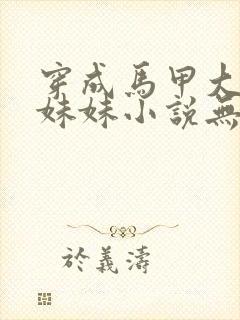 穿成馬甲大
妹妹小說無
於義濤